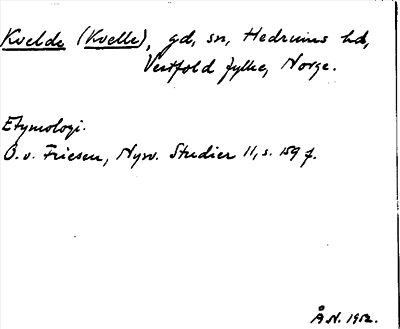 Kvelde (Kvelle), gd, sn, Hedrums hd,
Vestfold fylke, Norge.
Etymologi.
O. v. Friesen, Nysv. Studier 11, s. 159 f.
Å.N. 1952.